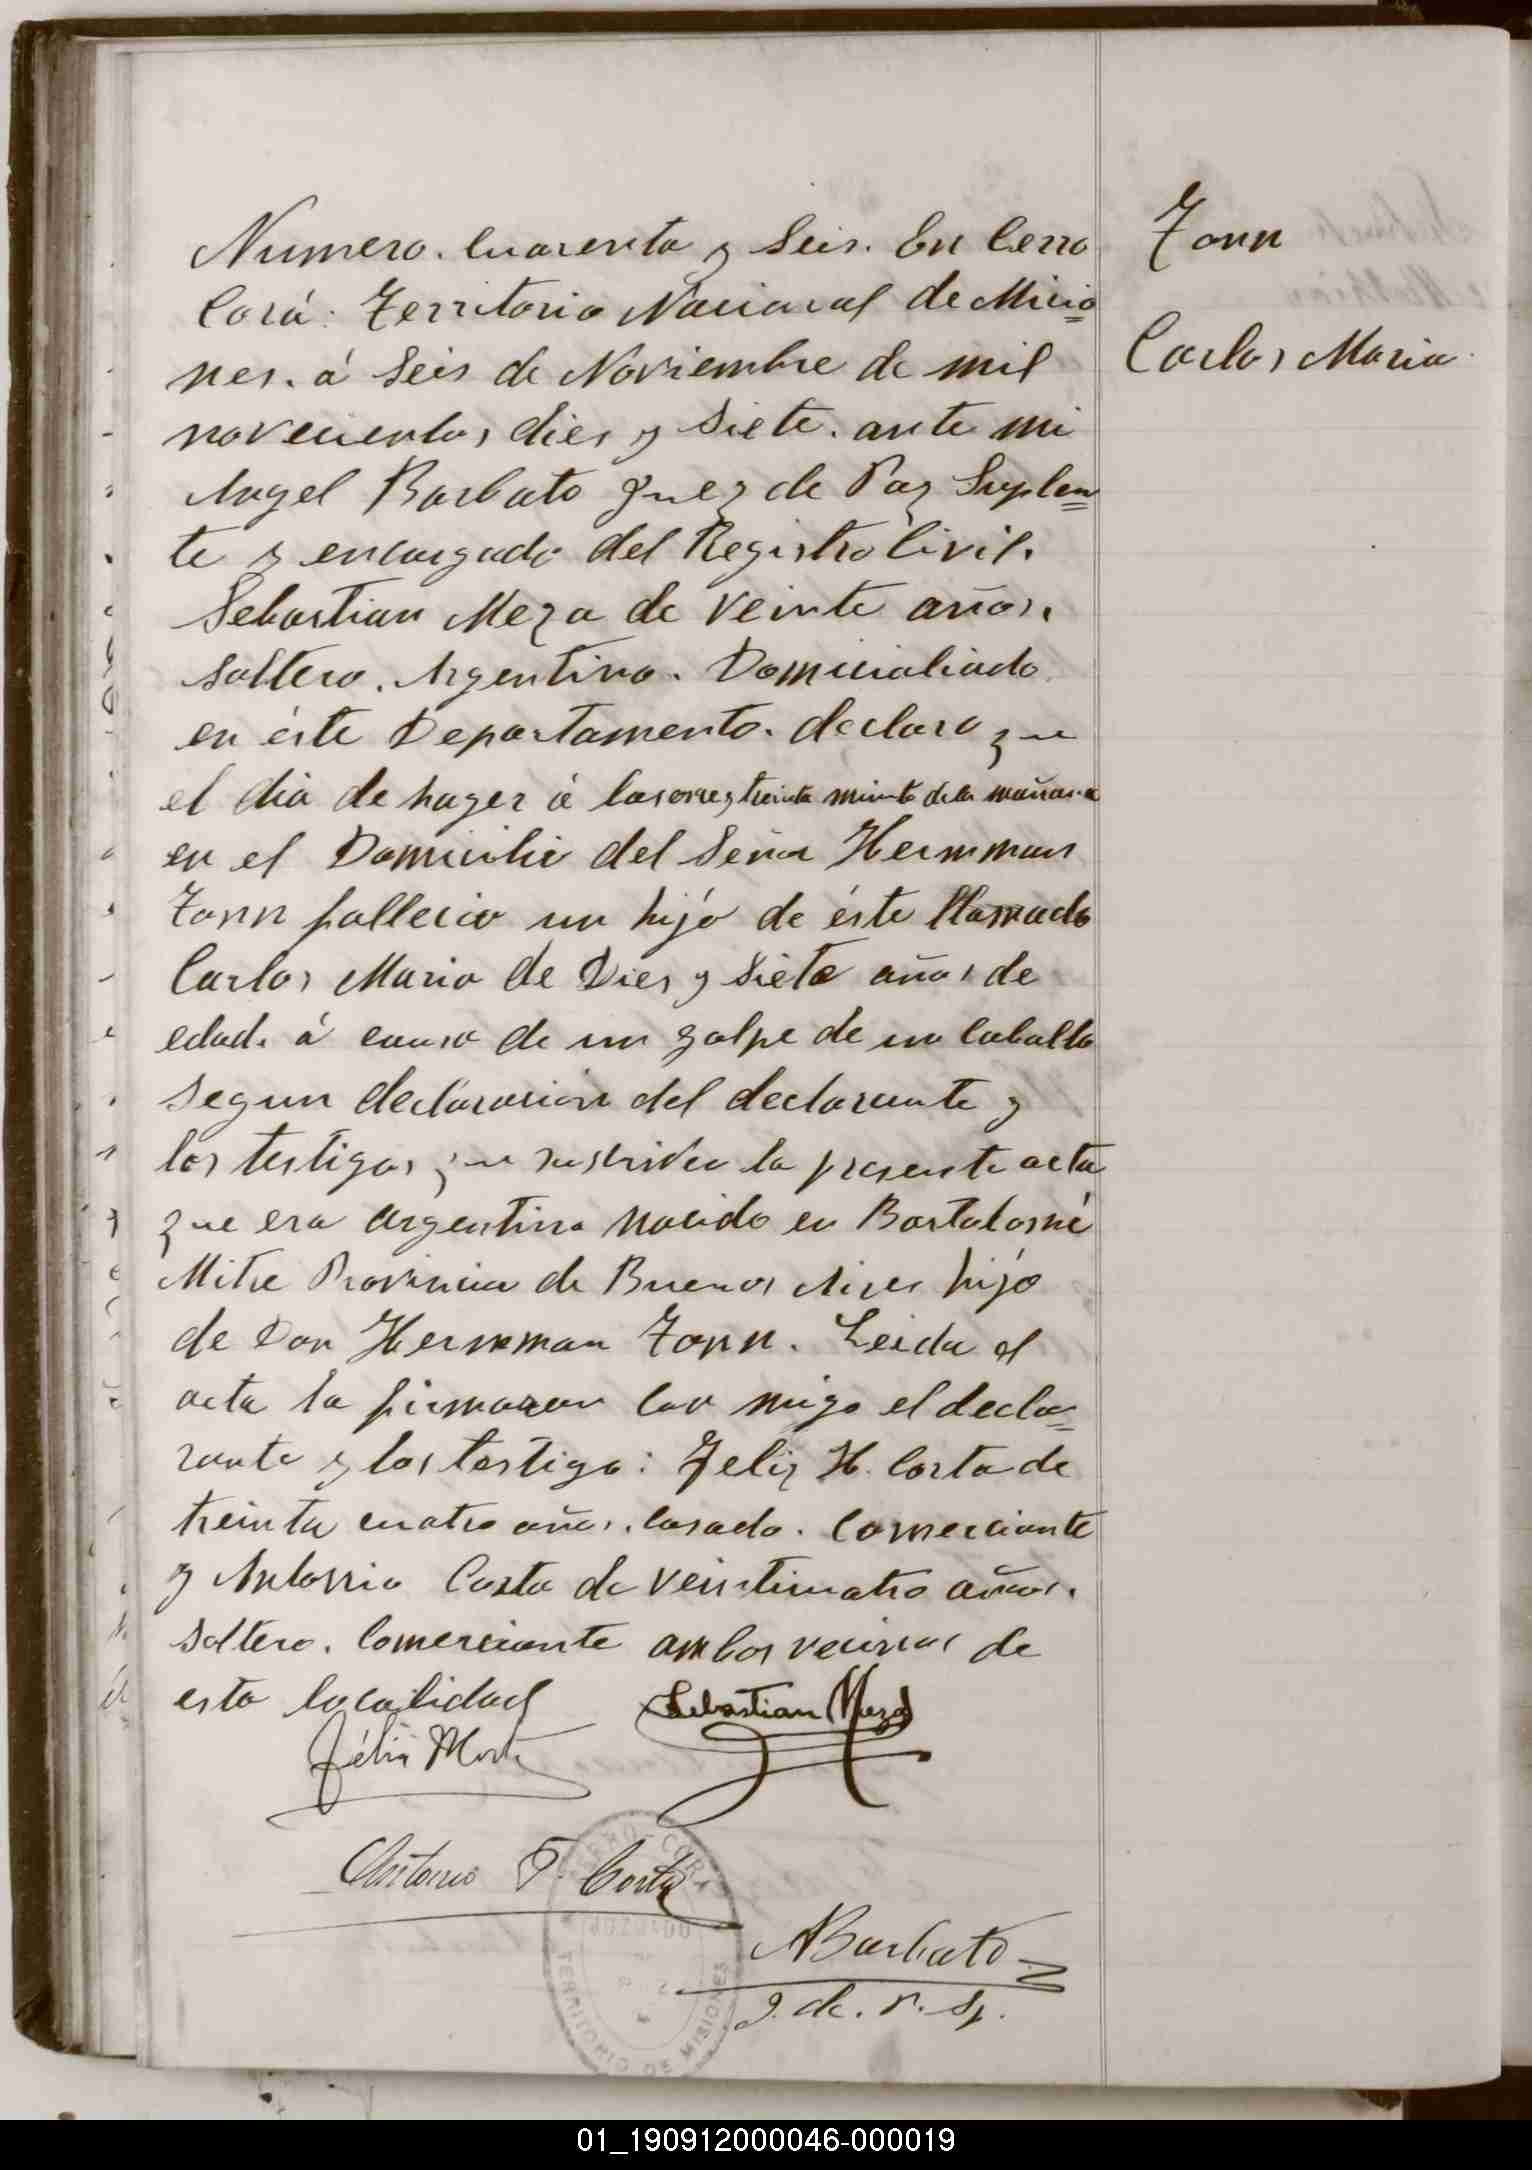 Numero. Cuarenta y Seis. En Cerro
Corá: Territorio Nacional de Micio=
nes. á Seis de Noviembre de mil
novecientos dies y Siete. ante mi
Angel Barbato Juez de Paz Suplen=
te y encargado del Registro Civil.
Sebastian Meza de Veinte años.
Soltero. Argentino. Domicialiado
en éste Departamento. declaro que
el dia de hayer á las onse y treinta minuto de la mañana
en el Domicilio del Señor Hermman
Tonn fallecio un hijo de éste llamado
Carlos Maria de Dies y Siete años de
edad. á causa de un golpe de un Caballo
Segun declaracion del declarante y
los testigos que suscriben la presente acta
que era argentino nacido en Bartolomé
Mitre Provincia de Buenos Aires hijo
de Don Hermman Tonn. Leida el
acta la firmaron con migo el decla=
rante y los testigo: Feliz H. Costa de
treinta cuatro años. Casado. Comerciante
y Antonio Costa de Veinticuatro años.
Soltero. Comerciante ambos vecinos de
esta localidad
Sebastian Meza
Félix
Antonio F. Costa
ABarbato
J. de. P. Sp.
CERRO-CORA
JUZGADO
TERRITORIO DE MISIONES
Tonn
Carlos Maria
01_190912000046-000019